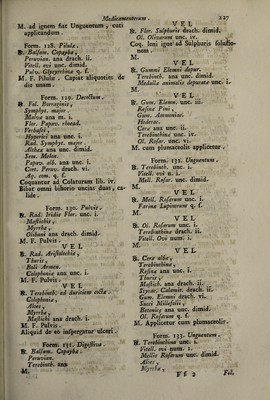 Medicamentorum. 227
M. ad ignem fiat Unguentum, cuti
applicandum.
Form. 128. Pilulæ.
℞. Balsam. Copayba,
Peruvian. ana drach. ii.
Vitell. ovi unc. dimid.
Pulv. Glycyrrhiza q. f.
M. F. Pilulæ. Capiat aliquoties de
die unam.
Form. 129. Decoctum.
℞. Fol. Borraginis,
Symphyt. major.
Malvæ ana m. i.
Flor. Papav. rhœad.
Verbasci,
Hyperici ana unc. i.
Rad. Symphyt. major.
Altheæ ana unc. dimid.
Sem. Melon.
Papav. alb. ana unc. i.
Cort. Peruv. drach. vi.
Aq. com. q. f.
Coquantur ad Colaturam lib. iv.
Bibat omni bihorio uncias duas, ca-
lide.
Form. 130. Pulvis.
℞. Rad. Iridis Flor. unc. i.
Mastichi,
Myrrhæ,
Olibani ana drach. dimid.
M. F. Pulvis.
VEL
℞. Rad. Aristolochiæ,
Thuris,
Boli Armen.
Colophoniæ ana unc. i.
M. F. Pulvis.
VEL
℞. Terebinth. ad duritiem coctæ.
Colophoniæ,
Aloes,
Myrrhæ,
Mastichi ana drach. i.
M. F. Pulvis.
Aliquid de eo inspergatur ulceri.
Form. 131. Digestivus.
℞. Balsam. Copaybæ,
Peruvian.
Terebinth. ana
M.
VEL
℞. Flor. Sulphuris drach. dimid.
Ol. Olivarum unc. iv.
Coq. leni igne ad Sulphuris solutio-
nem.
M.
VEL
℞. Gummi Elemni depur.
Terebinth. ana unc. dimid.
Medullæ animalis depurata unc. i.
M.
VEL
℞. Gum. Elemn. unc. iii.
Resinæ Pini,
Gum. Ammoniac.
Hederæ.
Ceræ ana unc. ii.
Terebinthina unc. iv.
Ol. Rosar. unc. vi.
M. cum plumaceolis applicetur.
Form. 132. Unguentum.
℞. Terebinth. unc. i.
Vitell. ovi n. i.
Mell. Rosar. unc. dimid.
M.
VEL
℞. Mell. Rosarum unc. i.
Farinæ Lupinorum q. f.
M.
VEL
℞. Ol. Rosarum unc. i.
Terebinthina drach. ii.
Vitell. Ovi num. i.
M.
VEL
℞. Ceræ albæ,
Terebinthina,
Resinæ ana unc. i.
Thuris,
Mastich. ana drach. ii.
Styrac. Calamit. drach. ii.
Gum. Elemni drach. vi.
Succi Millefolii,
Betonicæ ana unc. dimid.
Ol. Rosarum q. f.
M. Applicetur cum plumaceolis.
Form. 133. Unguentum.
℞. Terebinthina unc. i.
Vitell. ovi num. i.
Mellis Rosarum unc. dimid.
Aloes,
Myrrhæ,
Ff 2 Fol.